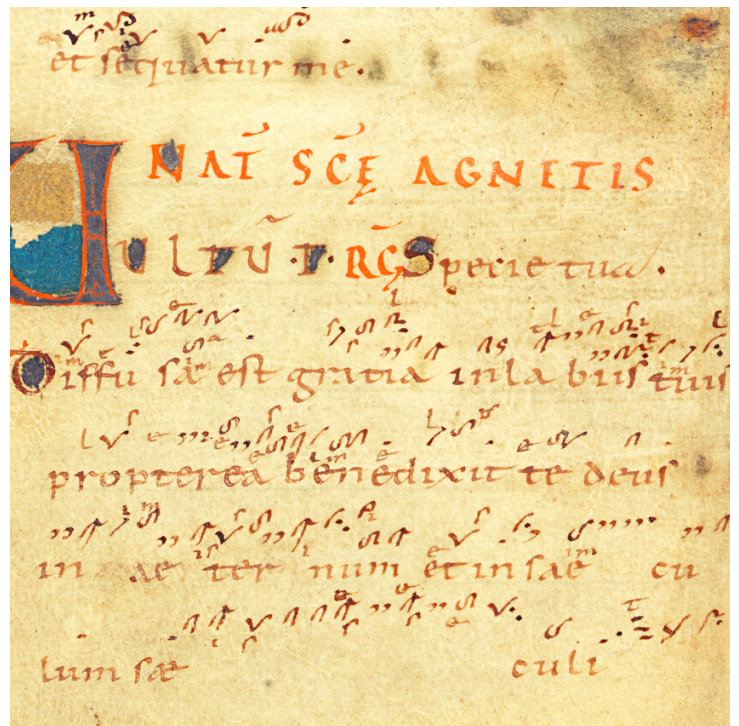 et sequatur me.
IN NAT̄ SC̄Ę AGNETIS
UULTŪ.T. RḠ Specie tua.
Diffusa est gratia inla biis tuis
propterea benedixit te deus
in ae ter num et in sae cu
lum sae culi